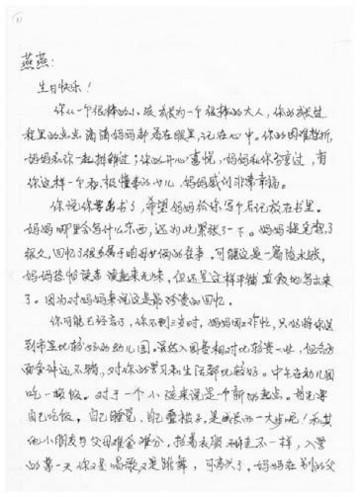 燕燕:
生日快乐!
你从一个很棒的小孩成长为一个很棒的大人,你的成长过
程里的点点滴滴妈妈都看在眼里,记在心中。你的困难挫折,
妈妈和你一起排解过;你的开心喜悦,妈妈和你分享过,有
你这样一个乖、极懂事的女儿,妈妈感到非常幸福。
你说你要出书了,希望妈妈给你写个后记放在书里。
妈妈哪里会写什么东西,还为此紧张了一下。妈妈提笔想了
很久,回忆了很多属于咱母女俩的往事。可能这是一篇流水账,
妈妈恐怕读者读起来无味,但还是这样平铺直叙地写出来
了。因为对妈妈来说这是最珍贵的回忆。
你可能已经忘了,你不到三岁时,妈妈因工作忙,只好将你送
到市里比较好的幼儿园。虽然入园费相对比较贵一些,但各方
面条件还不错,对你的学习和生活都比较好。中午在幼儿园
吃一顿饭。对于一个小孩来说是个新的起点。首先要
自己吃饭,自己睡觉,自己叠被子,是成长的一大步呢!和其
他小朋友与父母难舍难分,拉着衣服
不一样,入学
的第一天你又是唱歌又是跳舞,可高兴了,妈妈在别的父